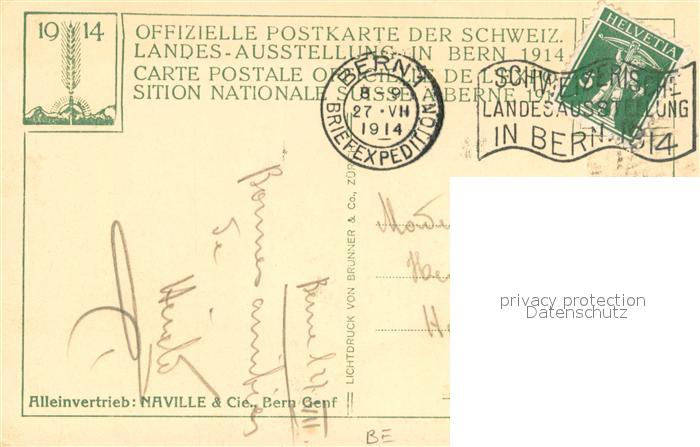 19 14
OFFIZIELLE POSTKARTE DER SCHWEIZ.
LANDES-AUSSTELLUNG IN BERN 1914
CARTE POSTALE OFFICIELLE DE L'EXPO
SITION NATIONALE SUISSE A BERNE 1914
HELVETIA
BERN 1
8-9
27·VII
1914
BRIEFEXPEDITION
SCHWEIZERISCHE
LANDESAUSSTELLUNG
IN BERN 1914
LICHTDRUCK VON BRUNNER & Co., ZÜR
Berne 27 VII
Bonnes amitiés
de
privacy protection
Datenschutz
Alleinvertrieb: NAVILLE & Cie., Bern Genf
BE